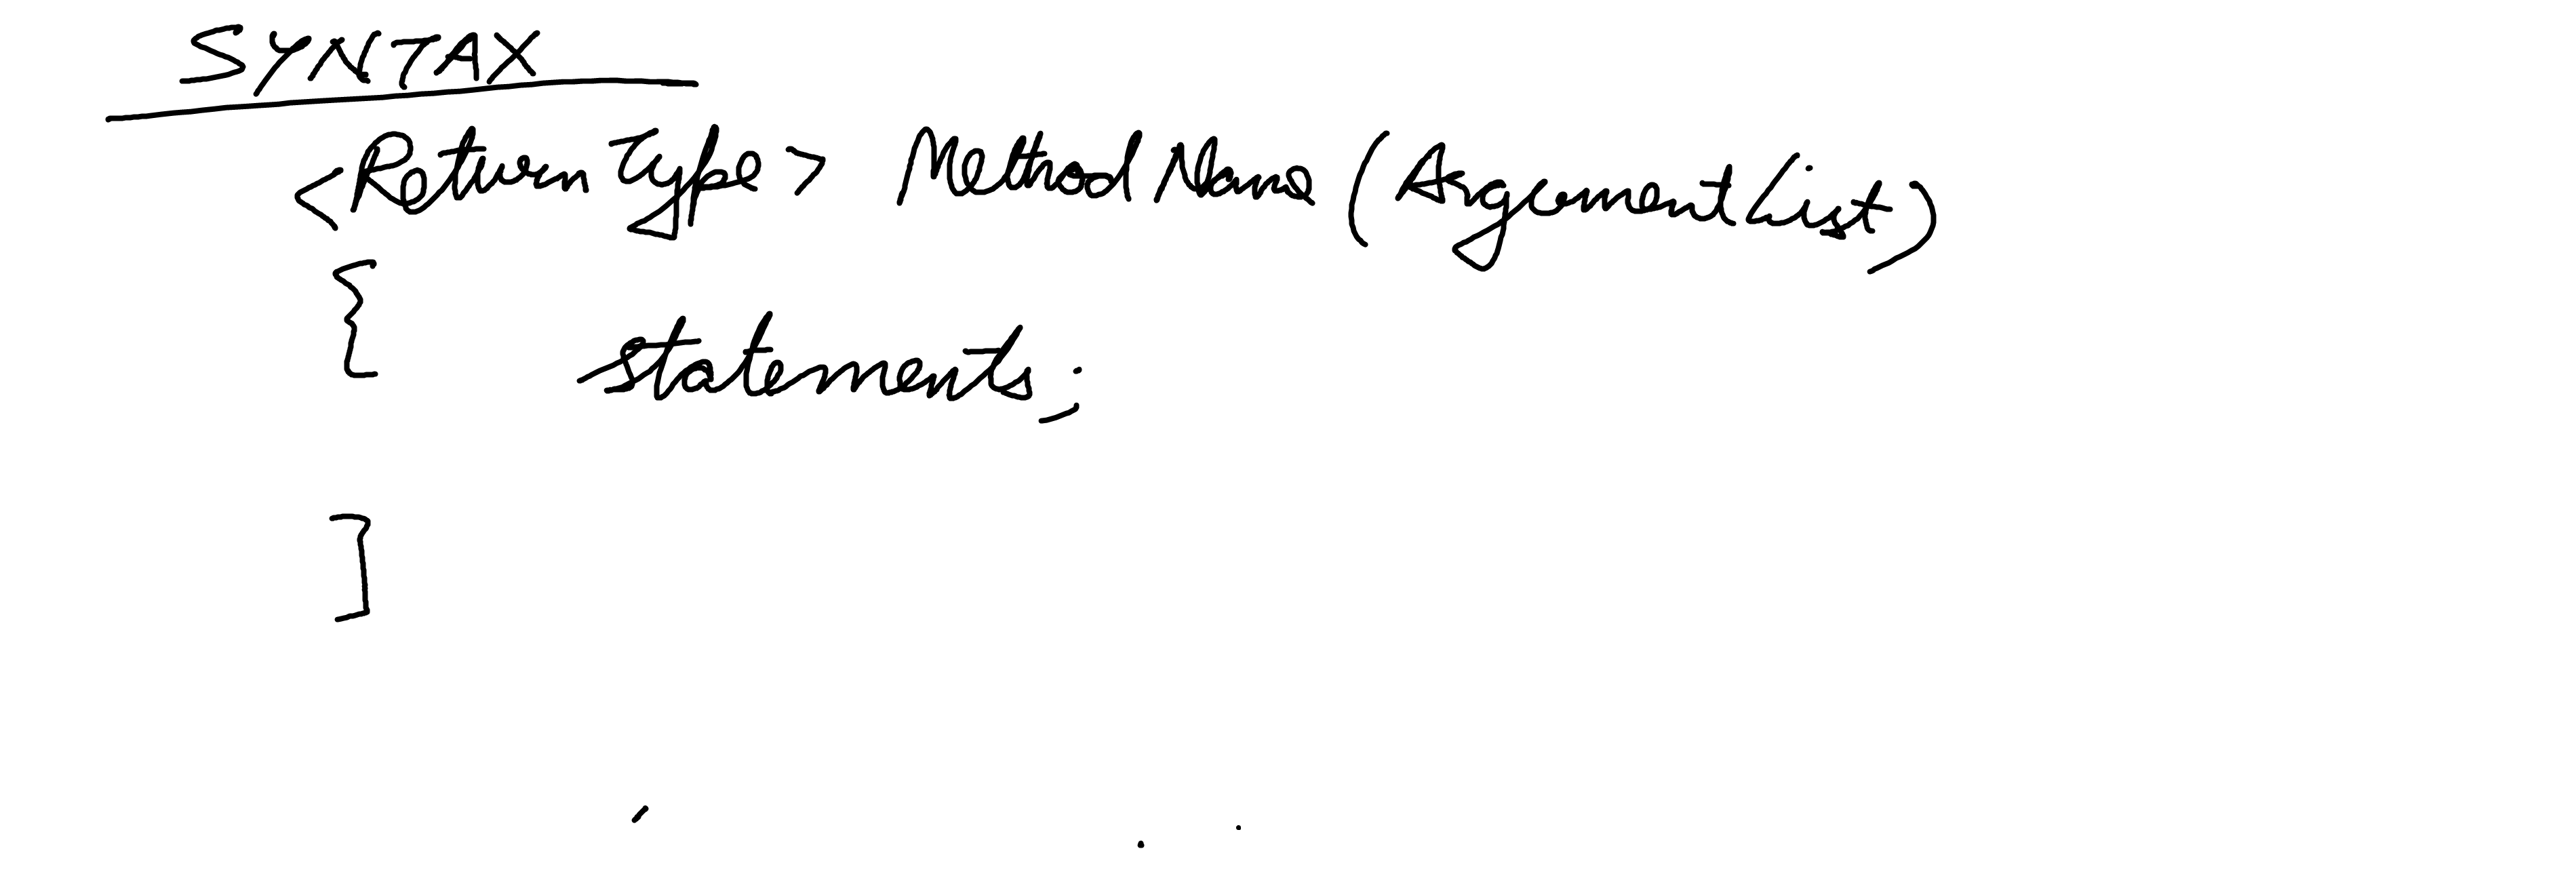 SYNTAX
<Return Type> Method Name (Argument List)
{
statements;
]